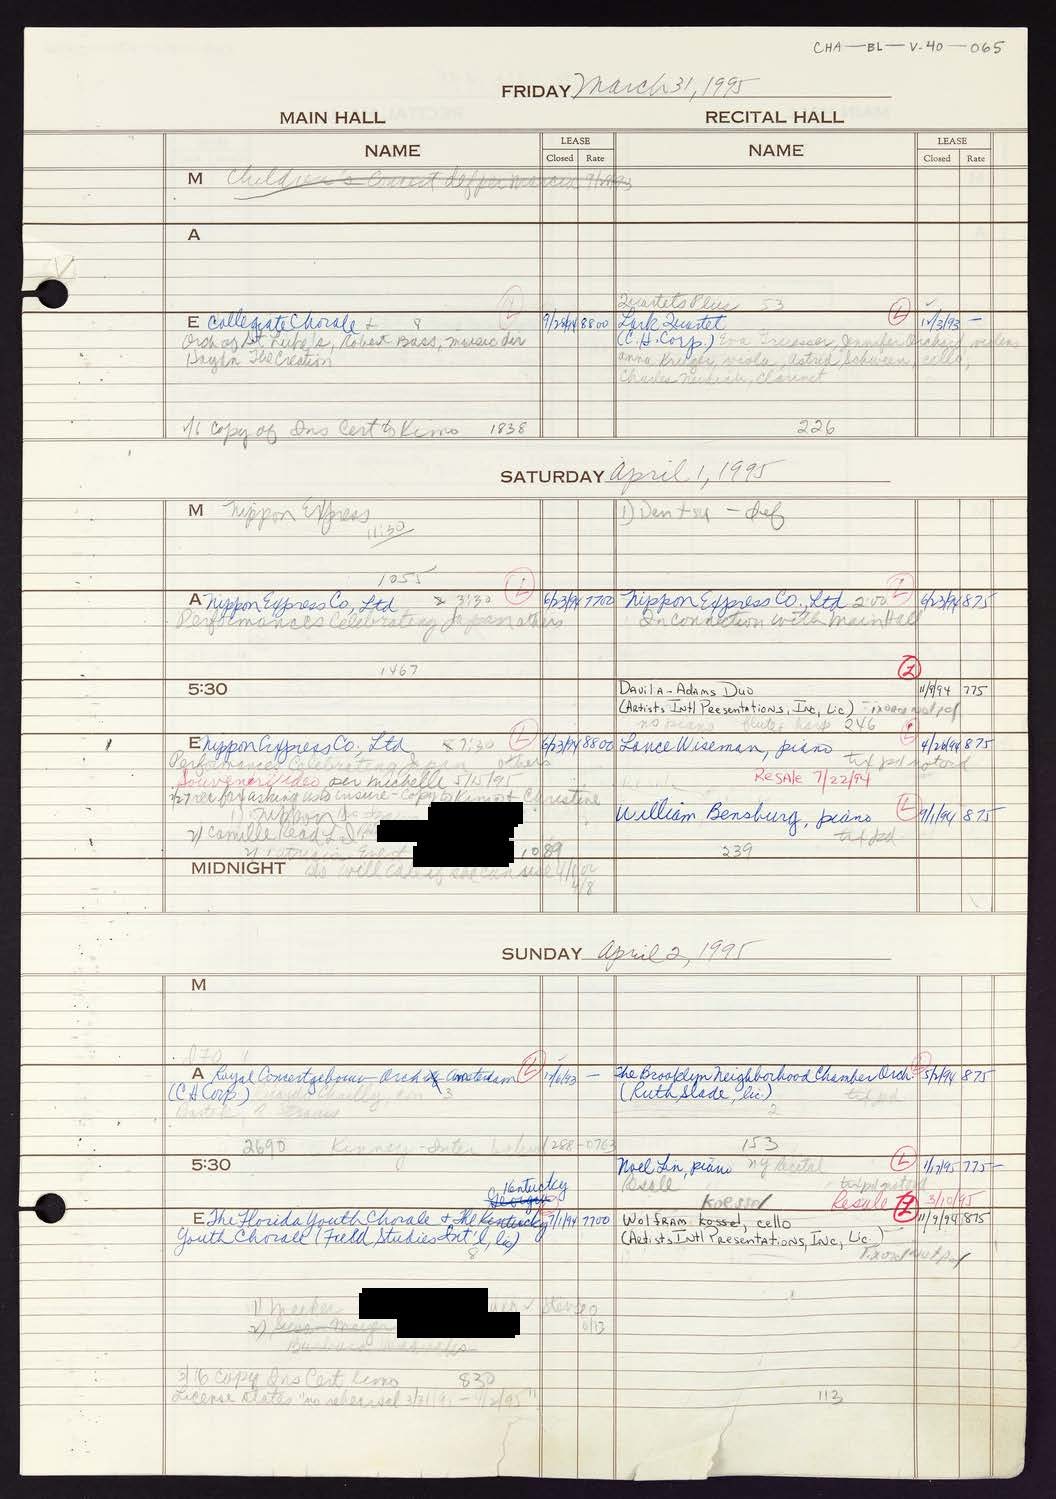 CHA-BL-V.40-065
FRIDAY March 31, 1995
MAIN HALL RECITAL HALL
NAME LEASE Closed Rate NAME LEASE Closed Rate
M Children's Concert def per Marcia
A
Quartets Plus 53
E Collegiate Chorale + 8 L 8800 Lark Quartet L 12/3/93 —
Orch of St Luke's, Robert Bass, music dir (C.H. Corp.) Eva Jennifer Orchard, violins
Haydn The Creation Anna Kruger, viola, Astrid Schween, cello,
Charles Neidich, Clarinet
Copy of Ins Cert to Kimo 1838 226
SATURDAY April 1, 1995
M Nippon Express 1) Dentsu - def
11:30
1055
A Nippon Express Co., Ltd 3:30 L 6/23/94 7700 Nippon Express Co., Ltd 2:00 L 6/23/94 875
Performances Celebrating Japan others In connection with Main Hall
1467 L
5:30 Davila-Adams Duo 11/9/94 775
(Artists Intl Presentations, Inc, Lic)
no piano flute, harp 246
E Nippon Express Co., Ltd. 7:30 L 6/23/94 8800 Lance Wiseman, piano L 4/26/94 875
Performances Celebrating Japan others
Souvenir Video per Michelle 5/15/95 Resale 7/22/94
insure-copy to Kimo + Christine
1) Nippon William Bensburg, piano L 9/1/94 875
2) Camille tix pd
1089 239
MIDNIGHT will call if
4/8
SUNDAY April 2, 1995
M
A Royal Concertgebouw Orch of Amsterdam L 12/6/93 — The Brooklyn Neighborhood Chamber Orch. L 5/2/94 875
(C.H. Corp.) Chailly, con 3 (Ruth Slade, lic.) tix pd
Bartok, R Strauss 2
2690 Kinney 288-0763 153
5:30 Noel Lin, piano NY recital L 1/17/95 775
Kentucky Resale
Georgia Koessel Resale L 3/10/95
E The Florida Youth Chorale + The Kentucky 7/1/94 7700 Wolfram Kossel, cello 11/9/94 875
Youth Chorale (Field Studies Int'l, lic) (Artists Intl Presentations, Inc, Lic.)
8
1) Meeker
2)
6/13
3/16 copy Ins Cert Kimo 830
License states "no rehearsal 3/31/95 - 4/2/95" 113